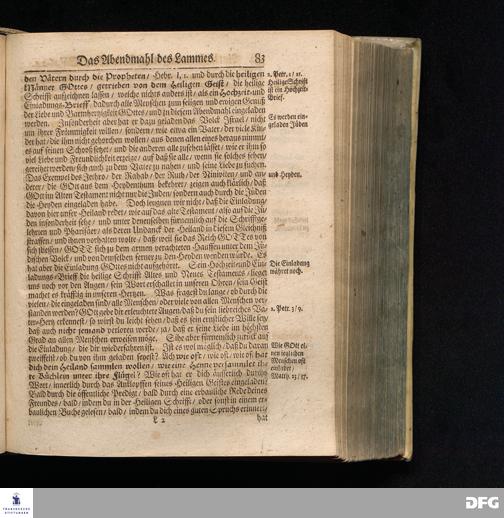 Das Abendmahl des Lammes. 83
den Vätern durch die Propheten / Hebr. I, 1. und durch die heiligen
Männer GOttes / getrieben von dem Heiligen Geist / die heilige
Schrifft aufzeichnen lassen / welche nichts anders ist / als ein Hochzeit-und
Einladungs-Brieff / dadurch alle Menschen zum seligen und ewigen Genuß
der Liebe und Barmhertzigkeit GOttes / und zu diesem Abendmahl eingeladen
werden. Insonderheit aber hat er dazu geladen das Volck Israel / nicht
um ihrer Frömmigkeit willen / sondern / wie etwa ein Vater / der viele Kin-
der hat / die ihm nicht gehorchen wollen / aus denen allen eines heraus nimmt /
es auf seinen Schoß setzet / und die anderen alle zusehen lässet / wie er ihm so
viel Liebe und Freundlichkeit erzeige / auf daß sie alle / wenn sie solches sehen /
gereitzet werden / sich auch zu dem Vater zu nahen / und seine Liebe zu suchen.
Das Exempel des Jethro / der Rahab / der Ruth / der Niniviten / und an-
derer / die GOtt aus dem Heydenthum bekehret / zeigen auch klärlich / daß
GOtt im Alten Testament nicht nur die Juden / sondern auch durch die Juden
die Heyden eingeladen habe. Doch leugnen wir nicht / daß die Einladung /
davon hier unser Heiland redet / wie auf das alte Testament / also auf die Jü-
den insonderheit sehe / und unter denenselben fürnemlich auf die Schrifftge-
lehrten und Pharisäer / als deren Undanck der Heiland in diesem Gleichniß
straffen / und ihnen vorhalten wolte / daß / weil sie das Reich GOTTes von
sich stiessen / GOTT sich zu dem armen verachteten Hauffen unter dem Jü-
dischen Volck / und von demselben ferner zu den Heyden wenden würde. Es
hat aber die Einladung GOttes nicht aufgehöret. Sein Hochzeit-und Ein-
ladungs-Brieff die heilige Schrifft Altes und Neues Testaments / lieget
uns noch vor den Augen / sein Wort erschallet in unseren Ohren / sein Geist
machet es kräfftig in unseren Hertzen. Was fragest du lange / ob durch die
vielen / die eingeladen sind / alle Menschen / oder viele von allen Menschen ver-
standen werden? GOtt gebe dir erleuchtete Augen / daß du sein liebreiches Va-
ter-Hertz erkennest / so wirst du leicht sehen / daß es sein ernstlicher Wille sey /
daß auch nicht jemand verloren werde / ja / daß er seine Liebe im höchsten
Grad an allen Menschen erweisen möge. Siehe aber fürnemlich zurück auf
die Einladung / die dir wiederfahren ist. Ist es wol möglich / daß du daran
zweiffelst / ob du von ihm geladen seyest? Ach wie oft / wie oft / wie oft hat
dich dein Heiland sammlen wollen / wie eine Henne versammlet ih-
re Küchlein unter ihre Flügel? Wie oft hat er dich äusserlich durchs
Wort / innerlich durch das Anklopffen seines Heiligen Geistes eingeladen!
Bald durch die öffentliche Predigt / bald durch eine erbauliche Rede deines
Freundes / bald / indem du in der Heiligen Schrifft / oder sonst in einem er-
baulichen Buche gelesen / bald / indem du dich eines guten Spruchs erinnert /
L 2 hat
2. Petr. 1 / 21.
Heilige Schrift
ist ein Hochzeit-
Brief.
Es werden ein-
geladen Jüden
und Heyden.
Die Einladung
währet noch.
2. Petr. 3 / 9.
Wie GOtt ei-
nen ieglichen
Menschen oft
einladet /
Matth. 23 / 37.
FRANCKESCHE
STIFTUNGEN
DFG